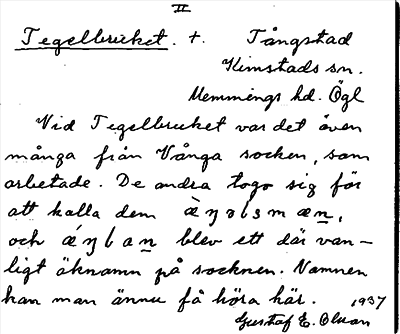 II
Tegelbruket. +. Tångstad
Kimstads sn.
Memmings hd. Ögl
Vid Tegelbruket var det även
många från Vånga socken, som
arbetade. De andra togo sig för
att kalla dem
och blev ett där van-
ligt öknamn på socknen. Namnen
kan man ännu få höra här. 1937
Gustaf E. Olsson